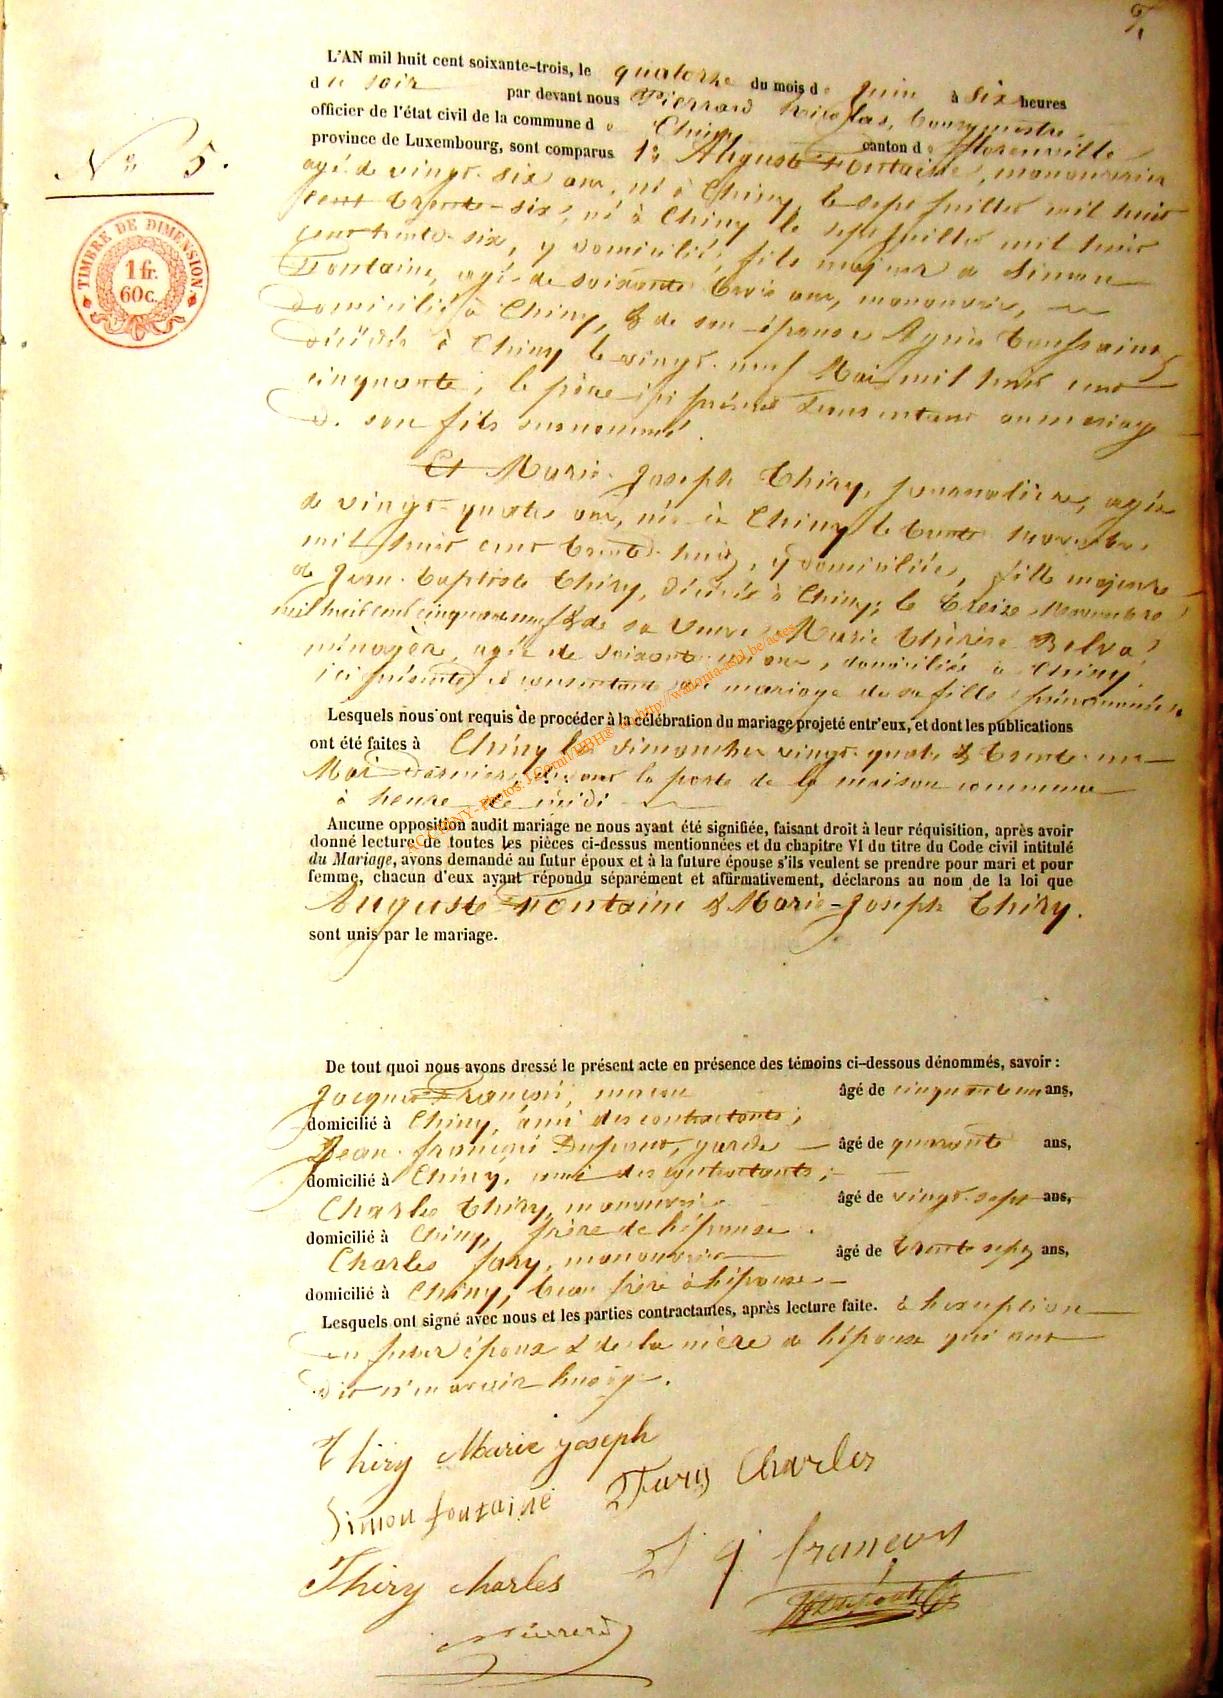 7.
L'AN mil huit cent soixante-trois, le quatorze du mois de Juin à six heures
du soir par devant nous Pierrard Nicolas, bourgmestre
officier de l'état civil de la commune de Chiny canton de Florenville
province de Luxembourg, sont comparus 1° Auguste Fontaine, manouvrier
No 5.
TIMBRE DE DIMENSION
1 fr.
60 c.
agé de vingt-six ans, né à Chiny, le sept juillet mil huit
cent trente-six, né à Chiny le sept juillet mil huit
cent trente-six, y domicilié, fils majeur de Simon
Fontaine, agé de soixante trois ans, manouvrier,
domicilié à Chiny, & de son épouse Agnès Toussaint
décédée à Chiny le vingt-neuf Mai mil huit cent
cinquante, le père ici présent & consentant au mariage
de son fils surnommé.
Et Marie-Joseph Thiry, journalière, agée
de vingt-quatre ans, née à Chiny le trente novembre
mil huit cent trente-huit, y domiciliée, fille majeure
de Jean-Baptiste Thiry, décédé à Chiny, le treize Novembre
mil huit cent cinquante neuf & de sa veuve Marie Thérèse Belva
ménagère, agée de soixante un ans, domiciliée à Chiny
ici présente et consentante au mariage de sa fille prénommée.
Lesquels nous ont requis de procéder à la célébration du mariage projeté entr'eux, et dont les publications
ont été faites à Chiny les dimanches vingt-quatre & trente-un
Mai derniers devant la porte de la maison commune
à heure de midi
Aucune opposition audit mariage ne nous ayant été signifiée, faisant droit à leur réquisition, après avoir
donné lecture de toutes les pièces ci-dessus mentionnées et du chapitre VI du titre du Code civil intitulé
du Mariage, avons demandé au futur époux et à la future épouse s'ils veulent se prendre pour mari et pour
femme, chacun d'eux ayant répondu séparément et affirmativement, déclarons au nom de la loi que
Auguste Fontaine & Marie-Joseph Thiry.
sont unis par le mariage.
De tout quoi nous avons dressé le présent acte en présence des témoins ci-dessous dénommés, savoir :
Jacques François, maçon âgé de cinquante un ans,
domicilié à Chiny, ami des contractants;
Jean-françois Dupont, garde âgé de quarante ans,
domicilié à Chiny, ami des contractants;
Charles Thiry, manouvrier âgé de vingt-sept ans,
domicilié à Chiny, frère de l'épouse.
Charles Jary, manouvrier âgé de trente sept ans,
domicilié à Chiny, beau frère à l'épouse
Lesquels ont signé avec nous et les parties contractantes, après lecture faite. à l'exception
du futur époux & de la mère de l'épouse qui ont
dit n'en avoir l'usage.
Thiry Marie joseph
Simon fontaine Jary Charles
Thiry charles J françois
Pierrard